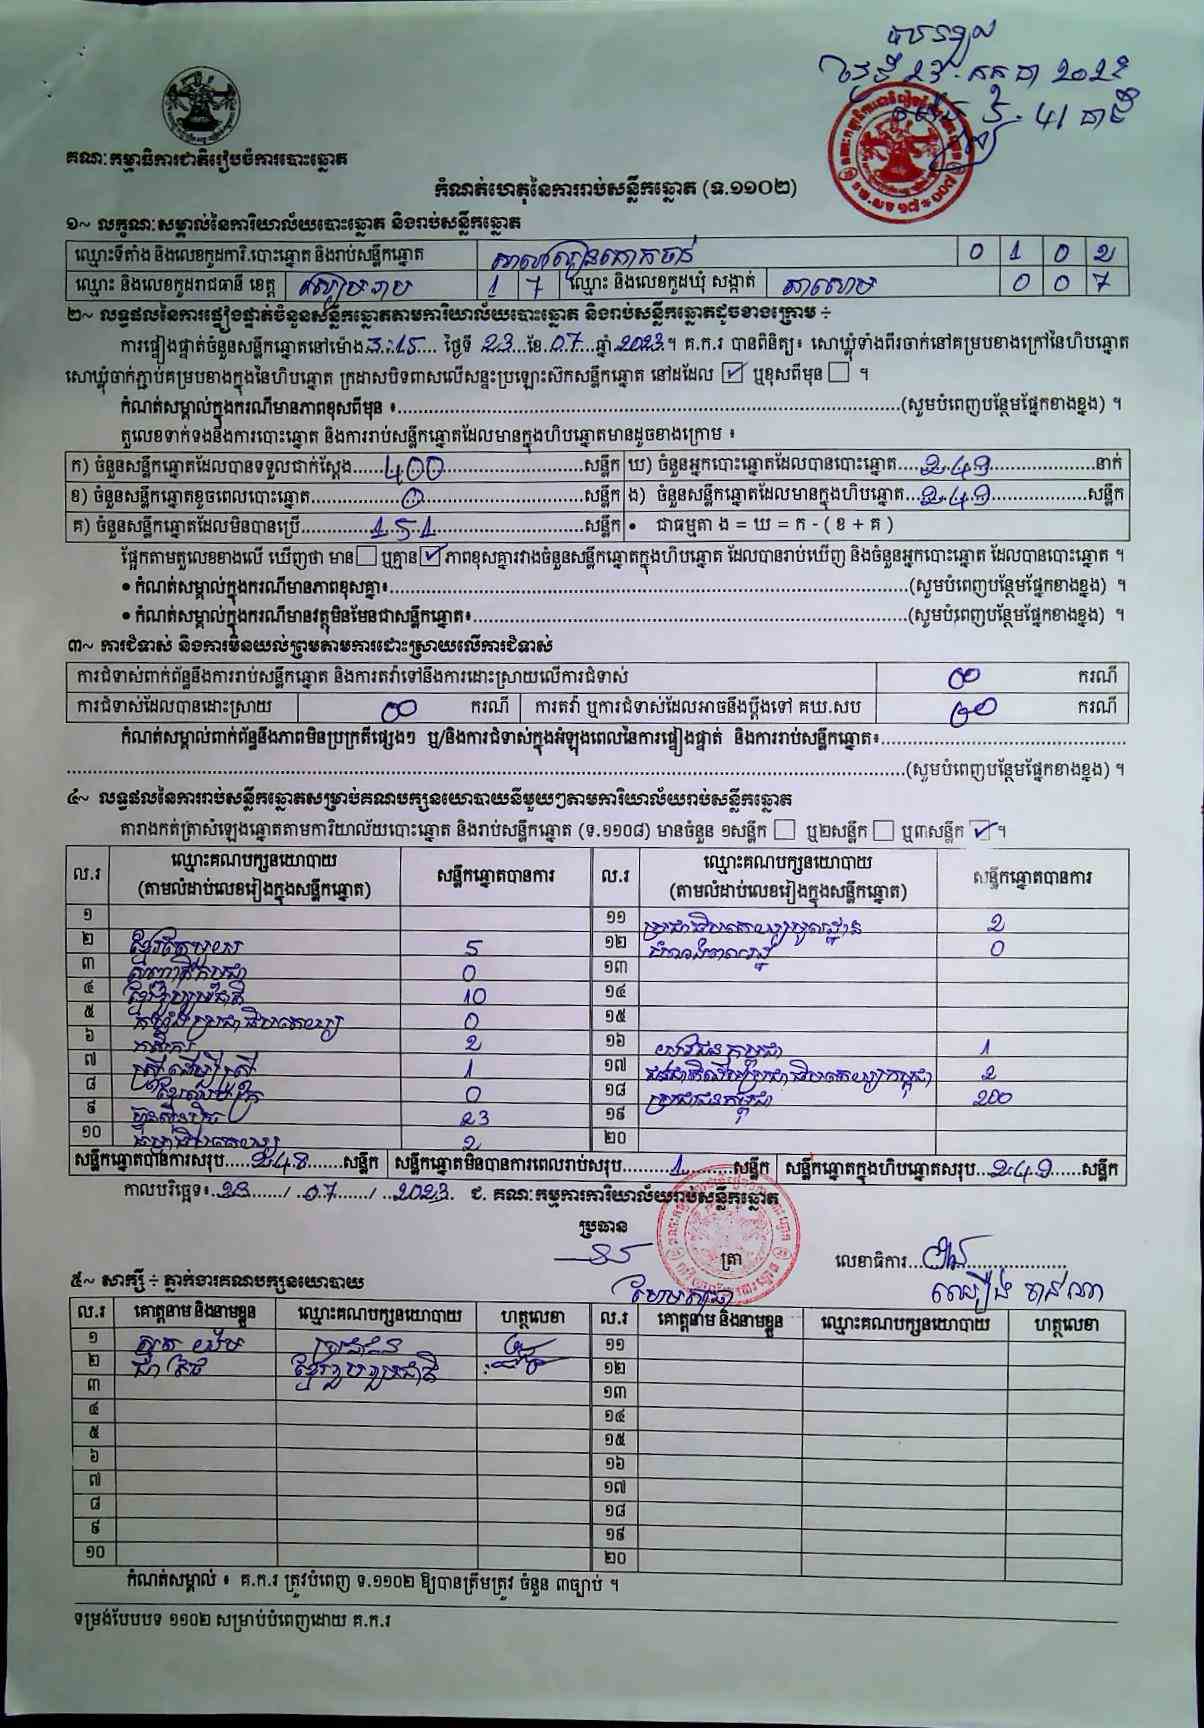 បានទទួល
ថ្ងៃទី 23 . កក្កដា 2023
គណៈកម្មាធិការជាតិរៀបចំការបោះឆ្នោត
កំណត់ហេតុនៃការរាប់សន្លឹកឆ្នោត (ទ.១១០២)
១~ លក្ខណៈសម្គាល់នៃការិយាល័យបោះឆ្នោត និងរាប់សន្លឹកឆ្នោត
ឈ្មោះទីតាំង និងលេខកូដការិ.បោះឆ្នោត និងរាប់សន្លឹកឆ្នោត សាលារៀនគោកចាន់ 0 1 0 2
ឈ្មោះ និងលេខកូដរាជធានី ខេត្ត សៀមរាប 1 7 ឈ្មោះ និងលេខកូដឃុំ សង្កាត់ 0 0 7
២~ លទ្ធផលនៃការផ្ទៀងផ្ទាត់ចំនួនសន្លឹកឆ្នោតតាមការិយាល័យបោះឆ្នោត និងរាប់សន្លឹកឆ្នោតដូចខាងក្រោម ÷
ការផ្ទៀងផ្ទាត់ចំនួនសន្លឹកឆ្នោតនៅម៉ោង 3:15 ថ្ងៃទី 23 ខែ 07 ឆ្នាំ 2023 ។ គ.ក.រ បានពិនិត្យ៖ សោឃ្លុំទាំងពីរចាក់នៅគម្របខាងក្រៅនៃហិបឆ្នោត
សោឃ្លុំចាក់ភ្ជាប់គម្របខាងក្នុងនៃហិបឆ្នោត ក្រដាសបិទពាសលើសន្ទះប្រឡោះស៊កសន្លឹកឆ្នោត នៅដដែល ☑ ឬខុសពីមុន ☐ ។
កំណត់សម្គាល់ក្នុងករណីមានភាពខុសពីមុន ៖ (សូមបំពេញបន្ថែមផ្នែកខាងខ្នង) ។
តួលេខទាក់ទងនឹងការបោះឆ្នោត និងការរាប់សន្លឹកឆ្នោតដែលមានក្នុងហិបឆ្នោតមានដូចខាងក្រោម ៖
ក) ចំនួនសន្លឹកឆ្នោតដែលបានទទួលជាក់ស្តែង 400 សន្លឹក ឃ) ចំនួនអ្នកបោះឆ្នោតដែលបានបោះឆ្នោត 249 នាក់
ខ) ចំនួនសន្លឹកឆ្នោតខូចពេលបោះឆ្នោត 0 សន្លឹក ង) ចំនួនសន្លឹកឆ្នោតដែលមានក្នុងហិបឆ្នោត 249 សន្លឹក
គ) ចំនួនសន្លឹកឆ្នោតដែលមិនបានប្រើ 151 សន្លឹក • ជាធម្មតា ង = ឃ = ក - ( ខ + គ )
ផ្អែកតាមតួលេខខាងលើ ឃើញថា មាន ☐ ឬគ្មាន ☑ ភាពខុសគ្នារវាងចំនួនសន្លឹកឆ្នោតក្នុងហិបឆ្នោត ដែលបានរាប់ឃើញ និងចំនួនអ្នកបោះឆ្នោត ដែលបានបោះឆ្នោត ។
• កំណត់សម្គាល់ក្នុងករណីមានភាពខុសគ្នា៖ (សូមបំពេញបន្ថែមផ្នែកខាងខ្នង) ។
• កំណត់សម្គាល់ក្នុងករណីមានវត្ថុមិនមែនជាសន្លឹកឆ្នោត៖ (សូមបំពេញបន្ថែមផ្នែកខាងខ្នង) ។
៣~ ការជំទាស់ និងការមិនយល់ព្រមតាមការដោះស្រាយលើការជំទាស់
ការជំទាស់ពាក់ព័ន្ធនឹងការរាប់សន្លឹកឆ្នោត និងការតវ៉ាទៅនឹងការដោះស្រាយលើការជំទាស់ 00 ករណី
ការជំទាស់ដែលបានដោះស្រាយ 00 ករណី ការតវ៉ា ឬការជំទាស់ដែលអាចនឹងប្តឹងទៅ គឃ.សប 00 ករណី
កំណត់សម្គាល់ពាក់ព័ន្ធនឹងភាពមិនប្រក្រតីផ្សេងៗ ឬ/និងការជំទាស់ក្នុងអំឡុងពេលនៃការផ្ទៀងផ្ទាត់ និងការរាប់សន្លឹកឆ្នោត៖
(សូមបំពេញបន្ថែមផ្នែកខាងខ្នង) ។
៤~ លទ្ធផលនៃការរាប់សន្លឹកឆ្នោតសម្រាប់គណបក្សនយោបាយនីមួយៗតាមការិយាល័យរាប់សន្លឹកឆ្នោត
តារាងកត់ត្រាសំឡេងឆ្នោតតាមការិយាល័យបោះឆ្នោត និងរាប់សន្លឹកឆ្នោត (ទ.១១០៨) មានចំនួន ១សន្លឹក ☐ ឬ២សន្លឹក ☐ ឬ៣សន្លឹក ☑ ។
ល.រ ឈ្មោះគណបក្សនយោបាយ (តាមលំដាប់លេខរៀងក្នុងសន្លឹកឆ្នោត) សន្លឹកឆ្នោតបានការ ល.រ ឈ្មោះគណបក្សនយោបាយ (តាមលំដាប់លេខរៀងក្នុងសន្លឹកឆ្នោត) សន្លឹកឆ្នោតបានការ
១ ១១ ប្រជាធិបតេយ្យមូលដ្ឋាន 2
២ ខ្មែរតែមួយ 5 ១២ 0
៣ សញ្ជាតិកម្ពុជា 0 ១៣
៤ ខ្មែររួបរួមជាតិ 10 ១៤
៥ កម្លាំងប្រជាធិបតេយ្យ 0 ១៥
៦ កសិករ 2 ១៦ យុវជនកម្ពុជា 1
៧ ស្ត្រីដើម្បីស្ត្រី 1 ១៧ ជនជាតិដើមប្រជាធិបតេយ្យកម្ពុជា 2
៨ ខ្មែរឈប់ក្រ 0 ១៨ ប្រជាជនកម្ពុជា 200
៩ ហ៊្វុនស៊ិនប៉ិច 23 ១៩
១០ ធម្មាធិបតេយ្យ 2 ២០
សន្លឹកឆ្នោតបានការសរុប 248 សន្លឹក សន្លឹកឆ្នោតមិនបានការពេលរាប់សរុប 1 សន្លឹក សន្លឹកឆ្នោតក្នុងហិបឆ្នោតសរុប 249 សន្លឹក
កាលបរិច្ឆេទ៖ 23 / 07 / 2023. ជ. គណៈកម្មការការិយាល័យរាប់សន្លឹកឆ្នោត
ប្រធាន
ត្រា លេខាធិការ
៥~ សាក្សី ÷ ភ្នាក់ងារគណបក្សនយោបាយ
ល.រ គោត្តនាម និងនាមខ្លួន ឈ្មោះគណបក្សនយោបាយ ហត្ថលេខា ល.រ គោត្តនាម និងនាមខ្លួន ឈ្មោះគណបក្សនយោបាយ ហត្ថលេខា
១ ប្រជាជន ១១
២ ជា ខ្មែររួបរួមជាតិ ១២
៣ ១៣
៤ ១៤
៥ ១៥
៦ ១៦
៧ ១៧
៨ ១៨
៩ ១៩
១០ ២០
កំណត់សម្គាល់ ៖ គ.ក.រ ត្រូវបំពេញ ទ.១១០២ ឱ្យបានត្រឹមត្រូវ ចំនួន ៣ច្បាប់ ។
ទម្រង់បែបបទ ១១០២ សម្រាប់បំពេញដោយ គ.ក.រ